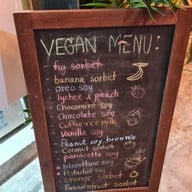 VEGAN MENU:
fig sorbet
banana sorbet
oreo soy
lychee & peach
Chocomint soy
Chocolate soy
Coffee rice milk
Vanilla soy
- Peanut soy brownie
- Coconut sorbet
- panacotta soy
- biscottino soy
- Pistachio soy
- orange sorbet
- Passionfruit sorbet